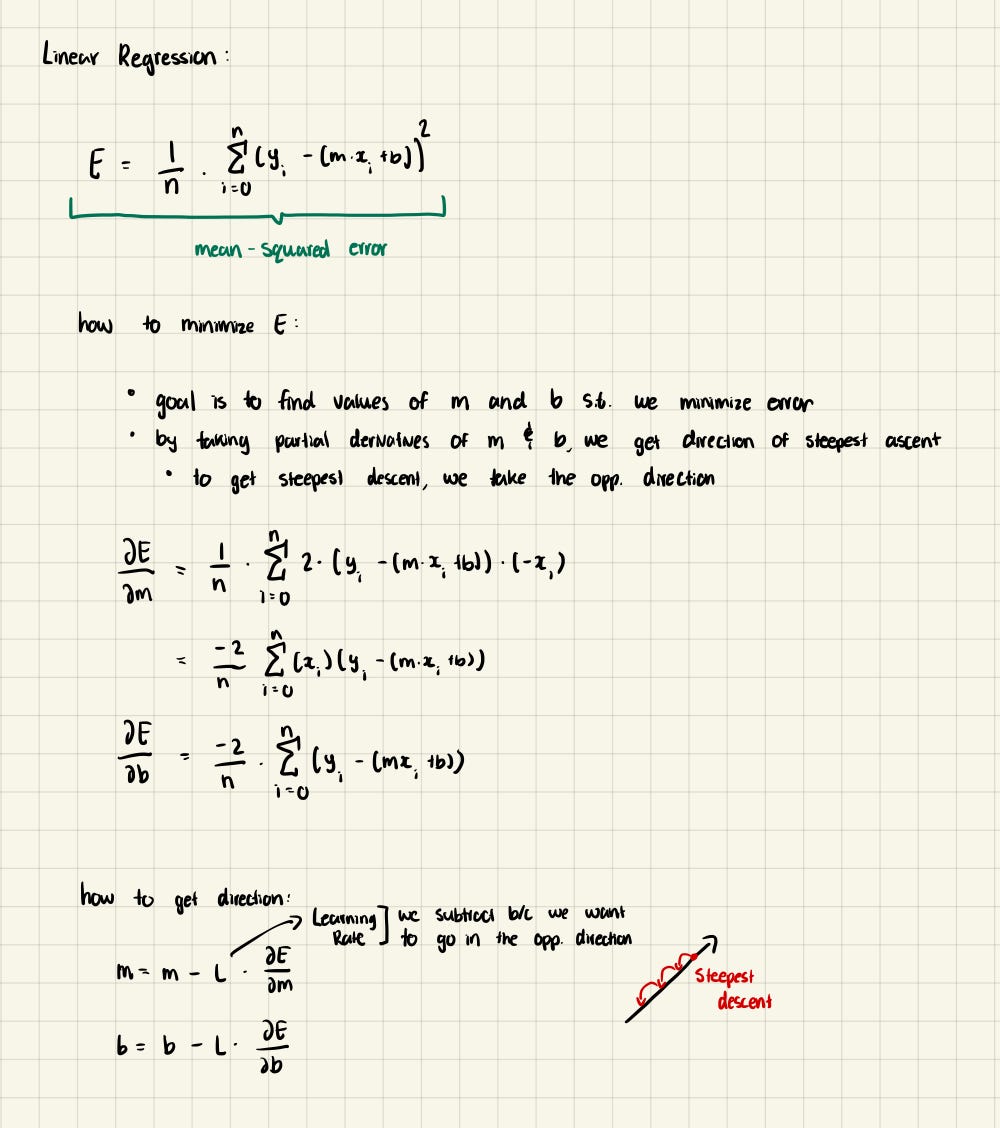 Linear Regression:
E = 1/n · Σ_{i=0}^{n} (y_i - (m·x_i + b))^2
mean-squared error
how to minimize E:
• goal is to find values of m and b s.t. we minimize error
• by taking partial derivatives of m & b, we get direction of steepest ascent
• to get steepest descent, we take the opp. direction
∂E/∂m = 1/n · Σ_{i=0}^{n} 2·(y_i - (m·x_i + b))·(-x_i)
= -2/n Σ_{i=0}^{n} (x_i)(y_i - (m·x_i + b))
∂E/∂b = -2/n · Σ_{i=0}^{n} (y_i - (mx_i + b))
how to get direction:
Learning Rate] we subtract b/c we want
to go in the opp. direction
m = m - L · ∂E/∂m
Steepest
descent
b = b - L · ∂E/∂b